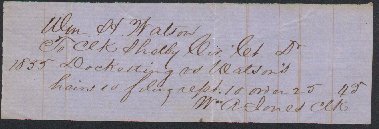 Wm. H. Watson
To Clk Shelby Cir Ct Dr
1855 Docketing vs Watson's
heirs 10 filing rept. 10 order 25 45
Wm A Jones Clk